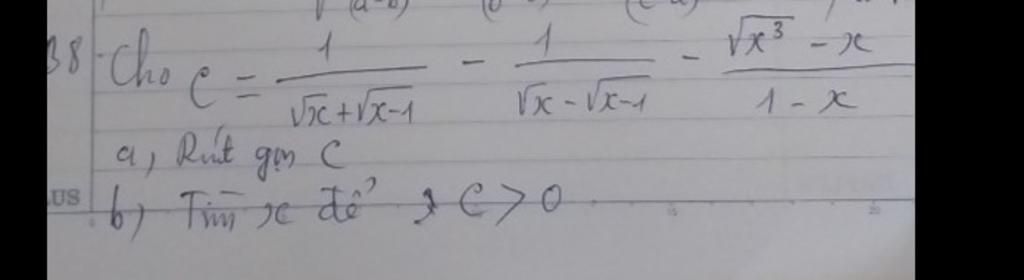 38. Cho C = 1/(√x + √x-1) - 1/(√x - √x-1) - (√x³ - x)/(1 - x)
a, Rút gọn C
US b, Tìm x để C > 0